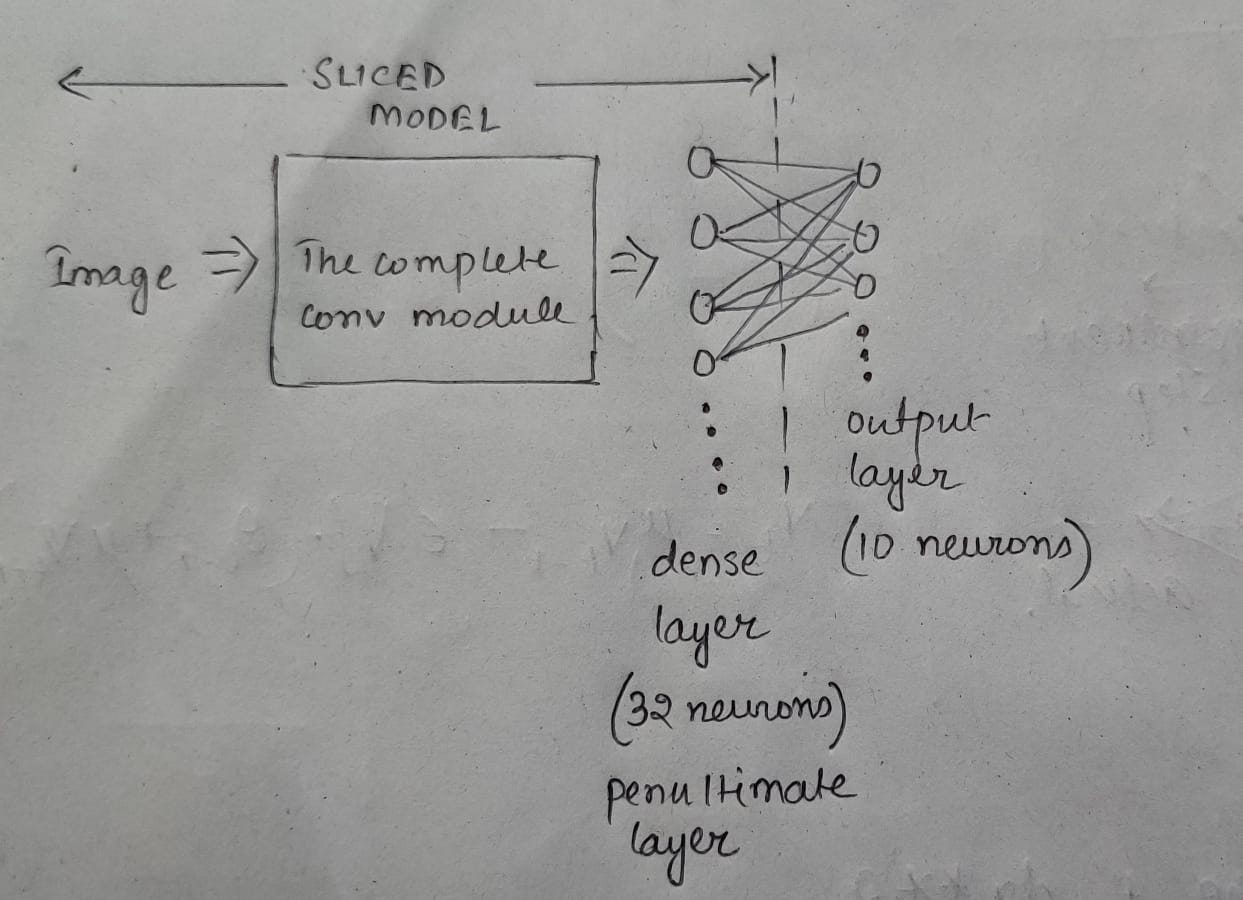 SLICED
MODEL
Image
The complete
conv module
output
layer
(10 neurons)
dense
layer
(32 neurons)
penultimate
layer